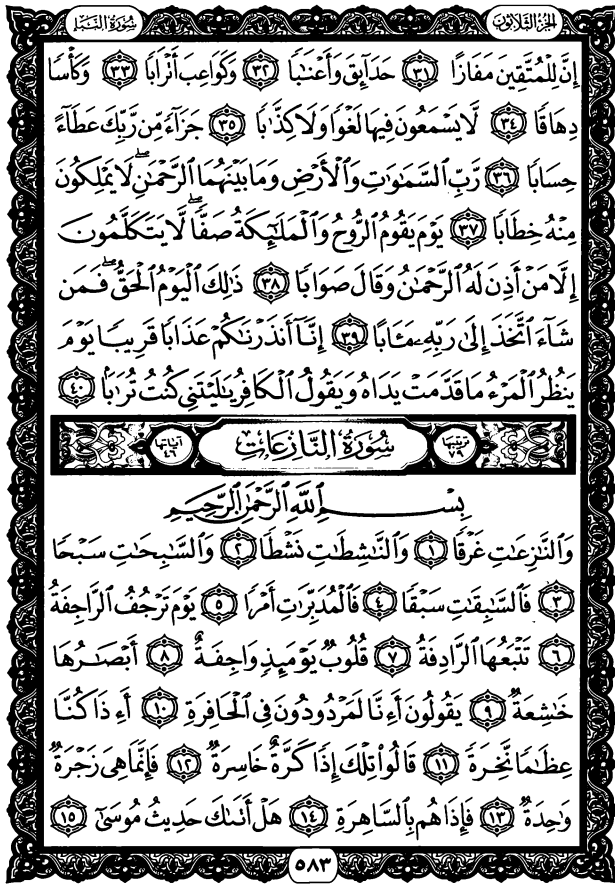 الجزء الثلاثون
سورة النبإ
إِنَّ لِلْمُتَّقِينَ مَفَازًا ٣١ حَدَآئِقَ وَأَعْنَٰبًا ٣٢ وَكَوَاعِبَ أَتْرَابًا ٣٣ وَكَأْسًا
دِهَاقًا ٣٤ لَّا يَسْمَعُونَ فِيهَا لَغْوًا وَلَا كِذَّٰبًا ٣٥ جَزَآءً مِّن رَّبِّكَ عَطَآءً
حِسَابًا ٣٦ رَّبِّ السَّمَٰوَٰتِ وَالْأَرْضِ وَمَا بَيْنَهُمَا الرَّحْمَٰنِ ۖ لَا يَمْلِكُونَ
مِنْهُ خِطَابًا ٣٧ يَوْمَ يَقُومُ الرُّوحُ وَالْمَلَٰٓئِكَةُ صَفًّا ۖ لَّا يَتَكَلَّمُونَ
إِلَّا مَنْ أَذِنَ لَهُ الرَّحْمَٰنُ وَقَالَ صَوَابًا ٣٨ ذَٰلِكَ الْيَوْمُ الْحَقُّ ۖ فَمَن
شَآءَ اتَّخَذَ إِلَىٰ رَبِّهِۦ مَـَٔابًا ٣٩ إِنَّآ أَنذَرْنَٰكُمْ عَذَابًا قَرِيبًا يَوْمَ
يَنظُرُ الْمَرْءُ مَا قَدَّمَتْ يَدَاهُ وَيَقُولُ الْكَافِرُ يَٰلَيْتَنِي كُنتُ تُرَٰبًا ٤٠
ترتيبها ٧٩ سُورَةُ النَّازِعَاتِ آياتها ٤٦
بِسْمِ اللَّهِ الرَّحْمَٰنِ الرَّحِيمِ
وَالنَّٰزِعَٰتِ غَرْقًا ١ وَالنَّٰشِطَٰتِ نَشْطًا ٢ وَالسَّٰبِحَٰتِ سَبْحًا
٣ فَالسَّٰبِقَٰتِ سَبْقًا ٤ فَالْمُدَبِّرَٰتِ أَمْرًا ٥ يَوْمَ تَرْجُفُ الرَّاجِفَةُ
٦ تَتْبَعُهَا الرَّادِفَةُ ٧ قُلُوبٌ يَوْمَئِذٍ وَاجِفَةٌ ٨ أَبْصَٰرُهَا
خَٰشِعَةٌ ٩ يَقُولُونَ أَءِنَّا لَمَرْدُودُونَ فِي الْحَافِرَةِ ١٠ أَءِذَا كُنَّا
عِظَٰمًا نَّخِرَةً ١١ قَالُوا تِلْكَ إِذًا كَرَّةٌ خَاسِرَةٌ ١٢ فَإِنَّمَا هِيَ زَجْرَةٌ
وَٰحِدَةٌ ١٣ فَإِذَا هُم بِالسَّاهِرَةِ ١٤ هَلْ أَتَىٰكَ حَدِيثُ مُوسَىٰٓ ١٥
٥٨٣